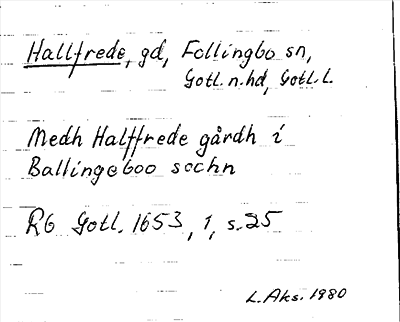 Hallfrede, gd, Follingbo sn,
Gotl. n. hd, Gotl. L.
Medh Halffrede gårdh i
Ballingeboo sochn
RG Gotl. 1653, 1, s. 25
L. Aks. 1980